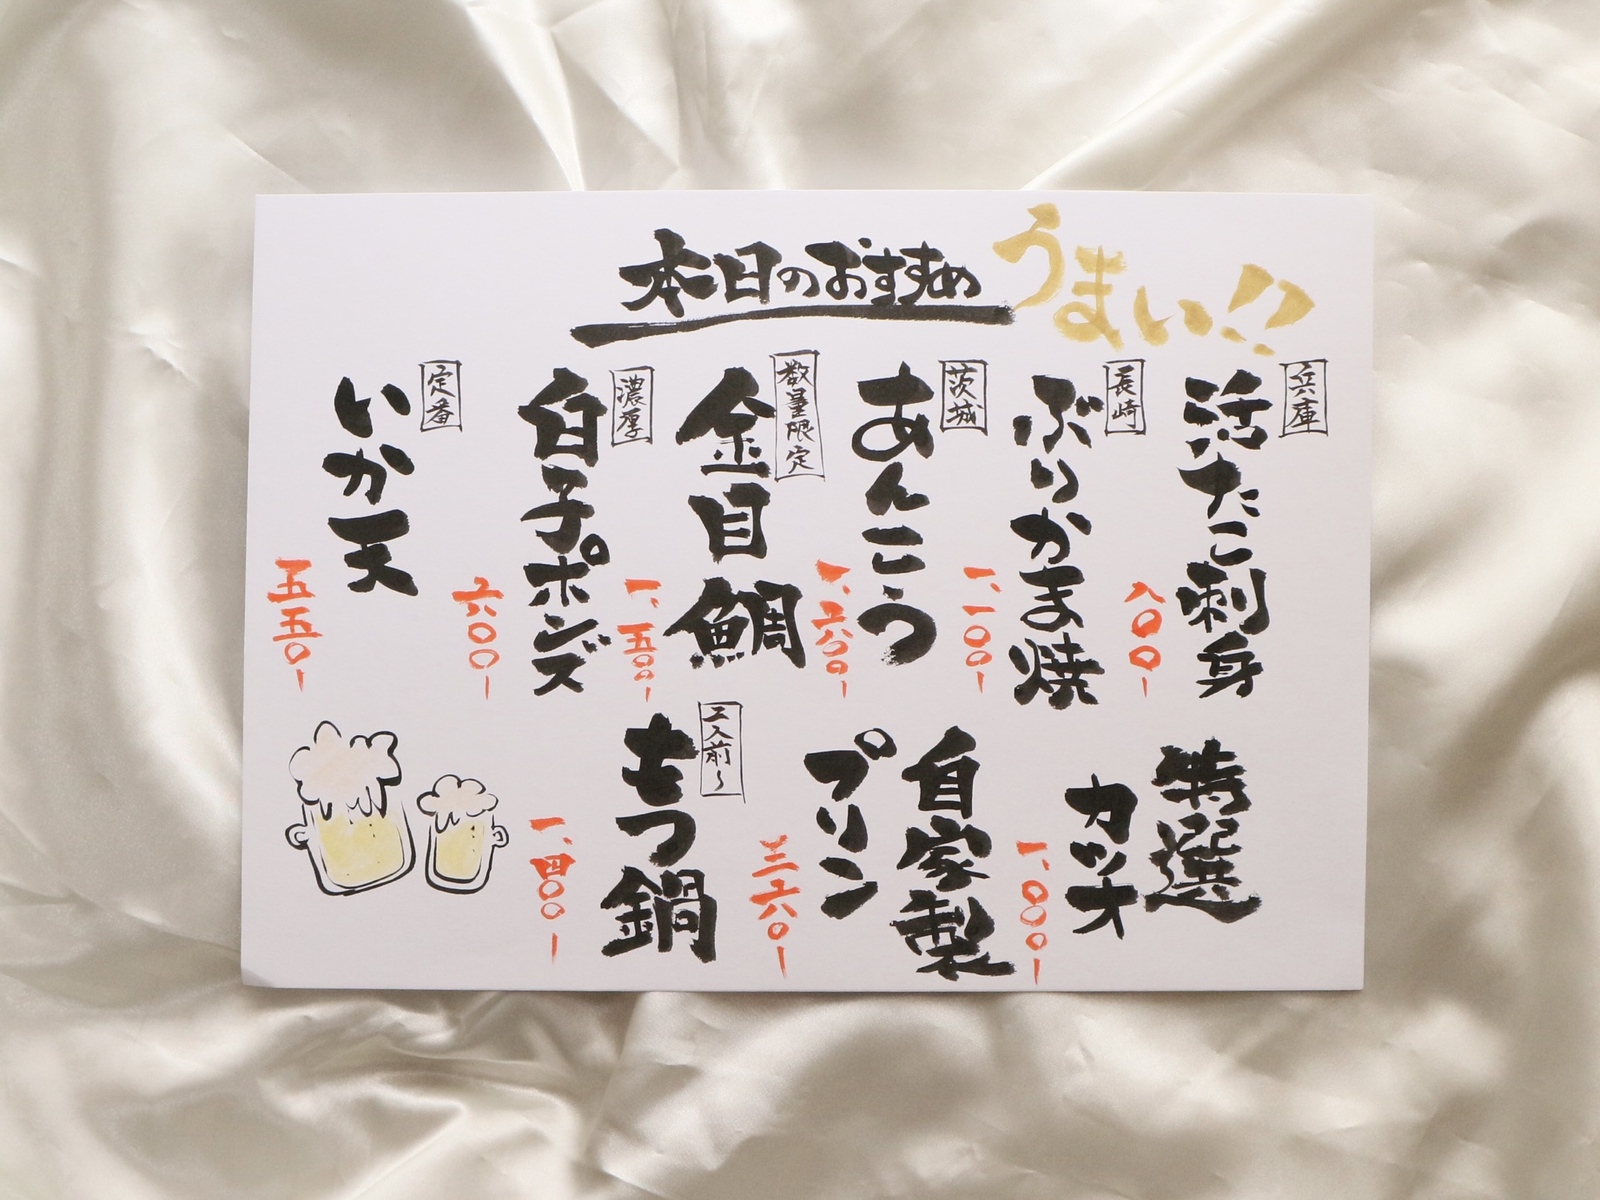 本日のおすすめ
うまい!!
兵庫
活たこ刺身
八〇〇-
長崎
ぶりかま焼
一、一〇〇-
茨城
あんこう
一、六〇〇-
数量限定
金目鯛
一、五〇〇-
濃厚
白子ポンズ
六〇〇-
定番
いか天
五五〇-
特選
カツオ
一、〇〇〇-
自家製
プリン
三六〇-
二人前〜
もつ鍋
一、四〇〇-